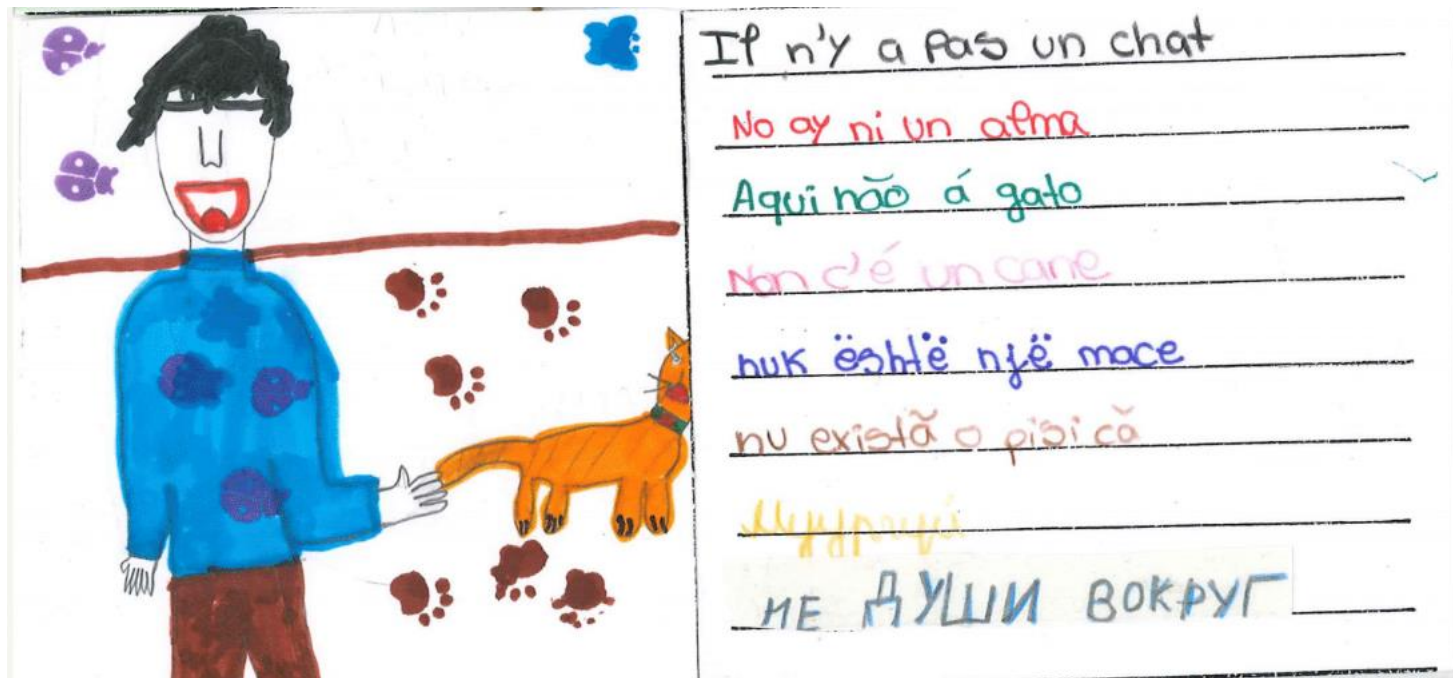 Il n'y a pas un chat
No ay ni un alma
Aqui não á gato
Non c'é un cane
nuk është një mace
nu există o pisică
НЕ ДУШИ ВОКРУГ